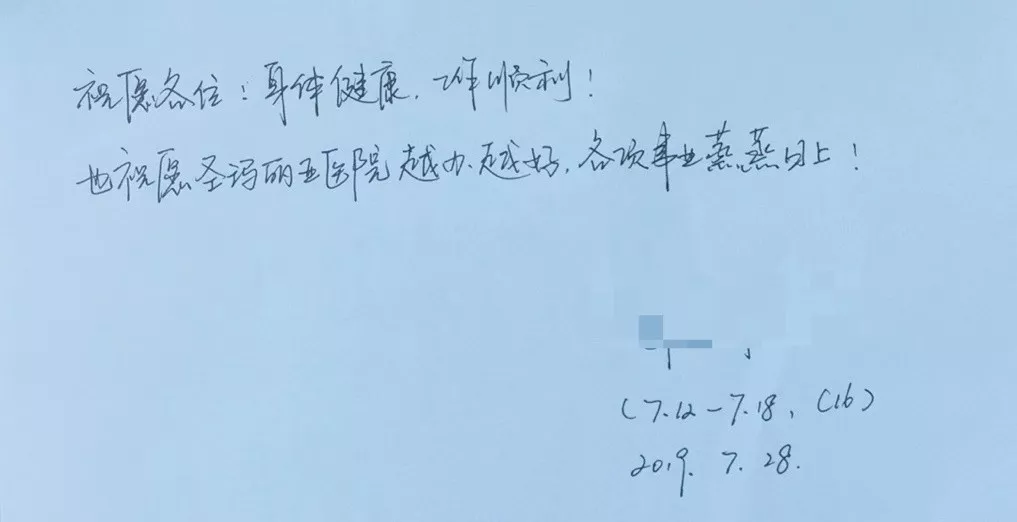 祝愿各位：身体健康，工作顺利！
也祝愿圣玛丽亚医院越办越好，各项事业蒸蒸日上！
(7.12-7.18, C16)
2019. 7. 28.